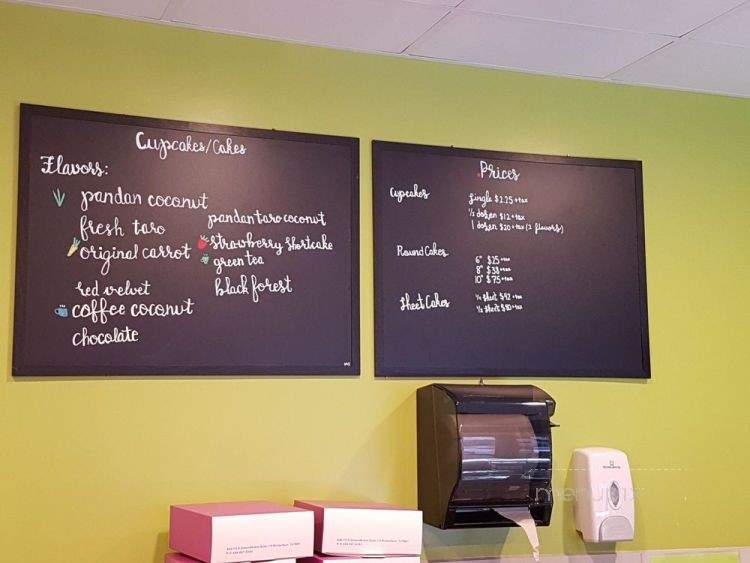 Cupcakes/Cakes
Flavors:
pandan coconut
fresh taro
original carrot
red velvet
coffee coconut
chocolate
pandan taro coconut
strawberry shortcake
green tea
black forest
Prices
Cupcakes
Single $2.25+tax
1/2 dozen $12+tax
1 dozen $20+tax (2 flavors)
Round Cakes
6" $25+tax
8" $38+tax
10" $75+tax
Sheet Cakes
1/4 sheet $42+tax
1/2 sheet $80+tax
menupix